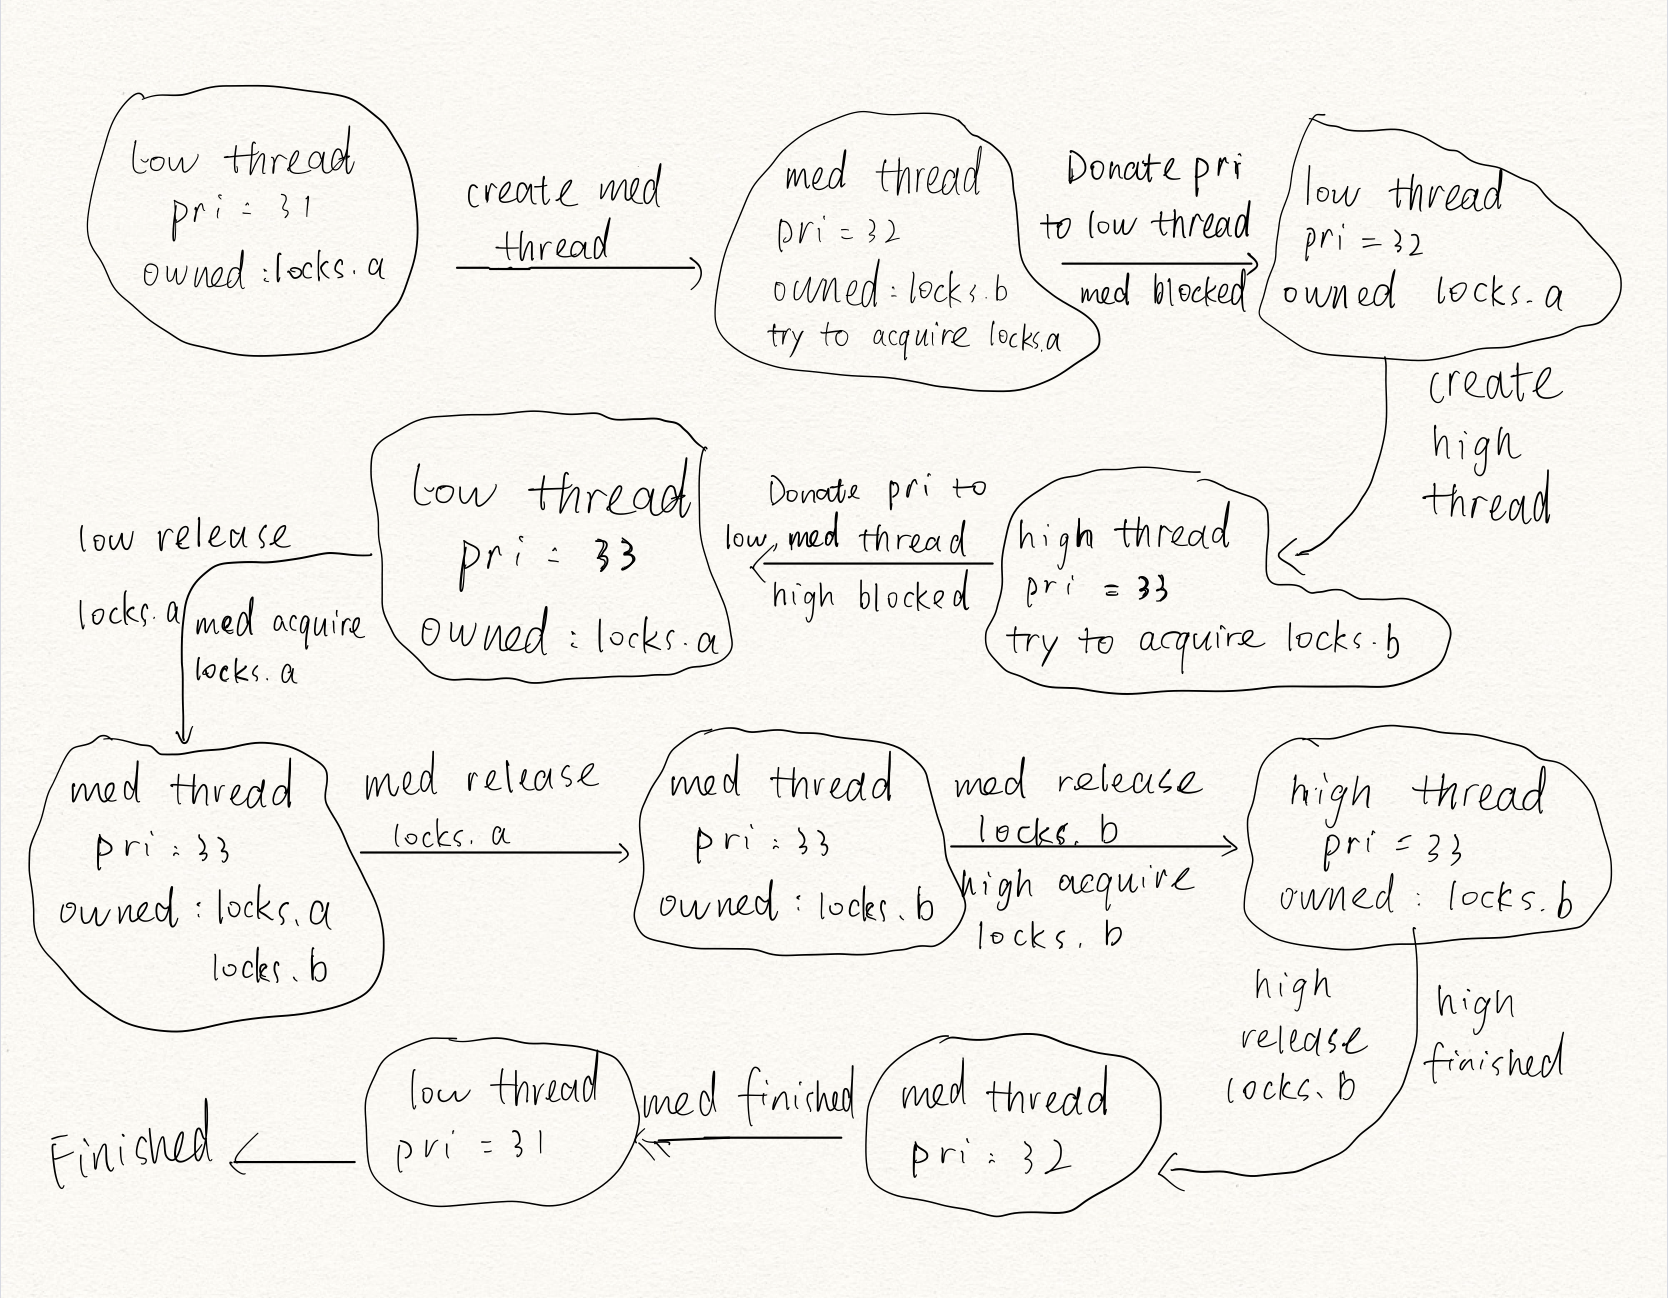 Low thread
pri = 31
owned : locks. a
create med
thread
med thread
pri = 32
owned : locks. b
try to acquire locks.a
Donate pri
to low thread
med blocked
low thread
pri = 32
owned locks. a
create
high
thread
high thread
pri = 33
try to acquire locks. b
Donate pri to
low, med thread
high blocked
Low thread
pri = 33
owned : locks. a
low release
locks. a
med acquire
locks. a
med thread
pri : 33
owned : locks. a
locks. b
med release
locks. a
med thread
pri : 33
owned : locks. b
med release
locks. b
high acquire
locks. b
high thread
pri = 33
owned : locks. b
high
release
locks. b
high
finished
med thread
pri : 32
med finished
low thread
pri = 31
Finished